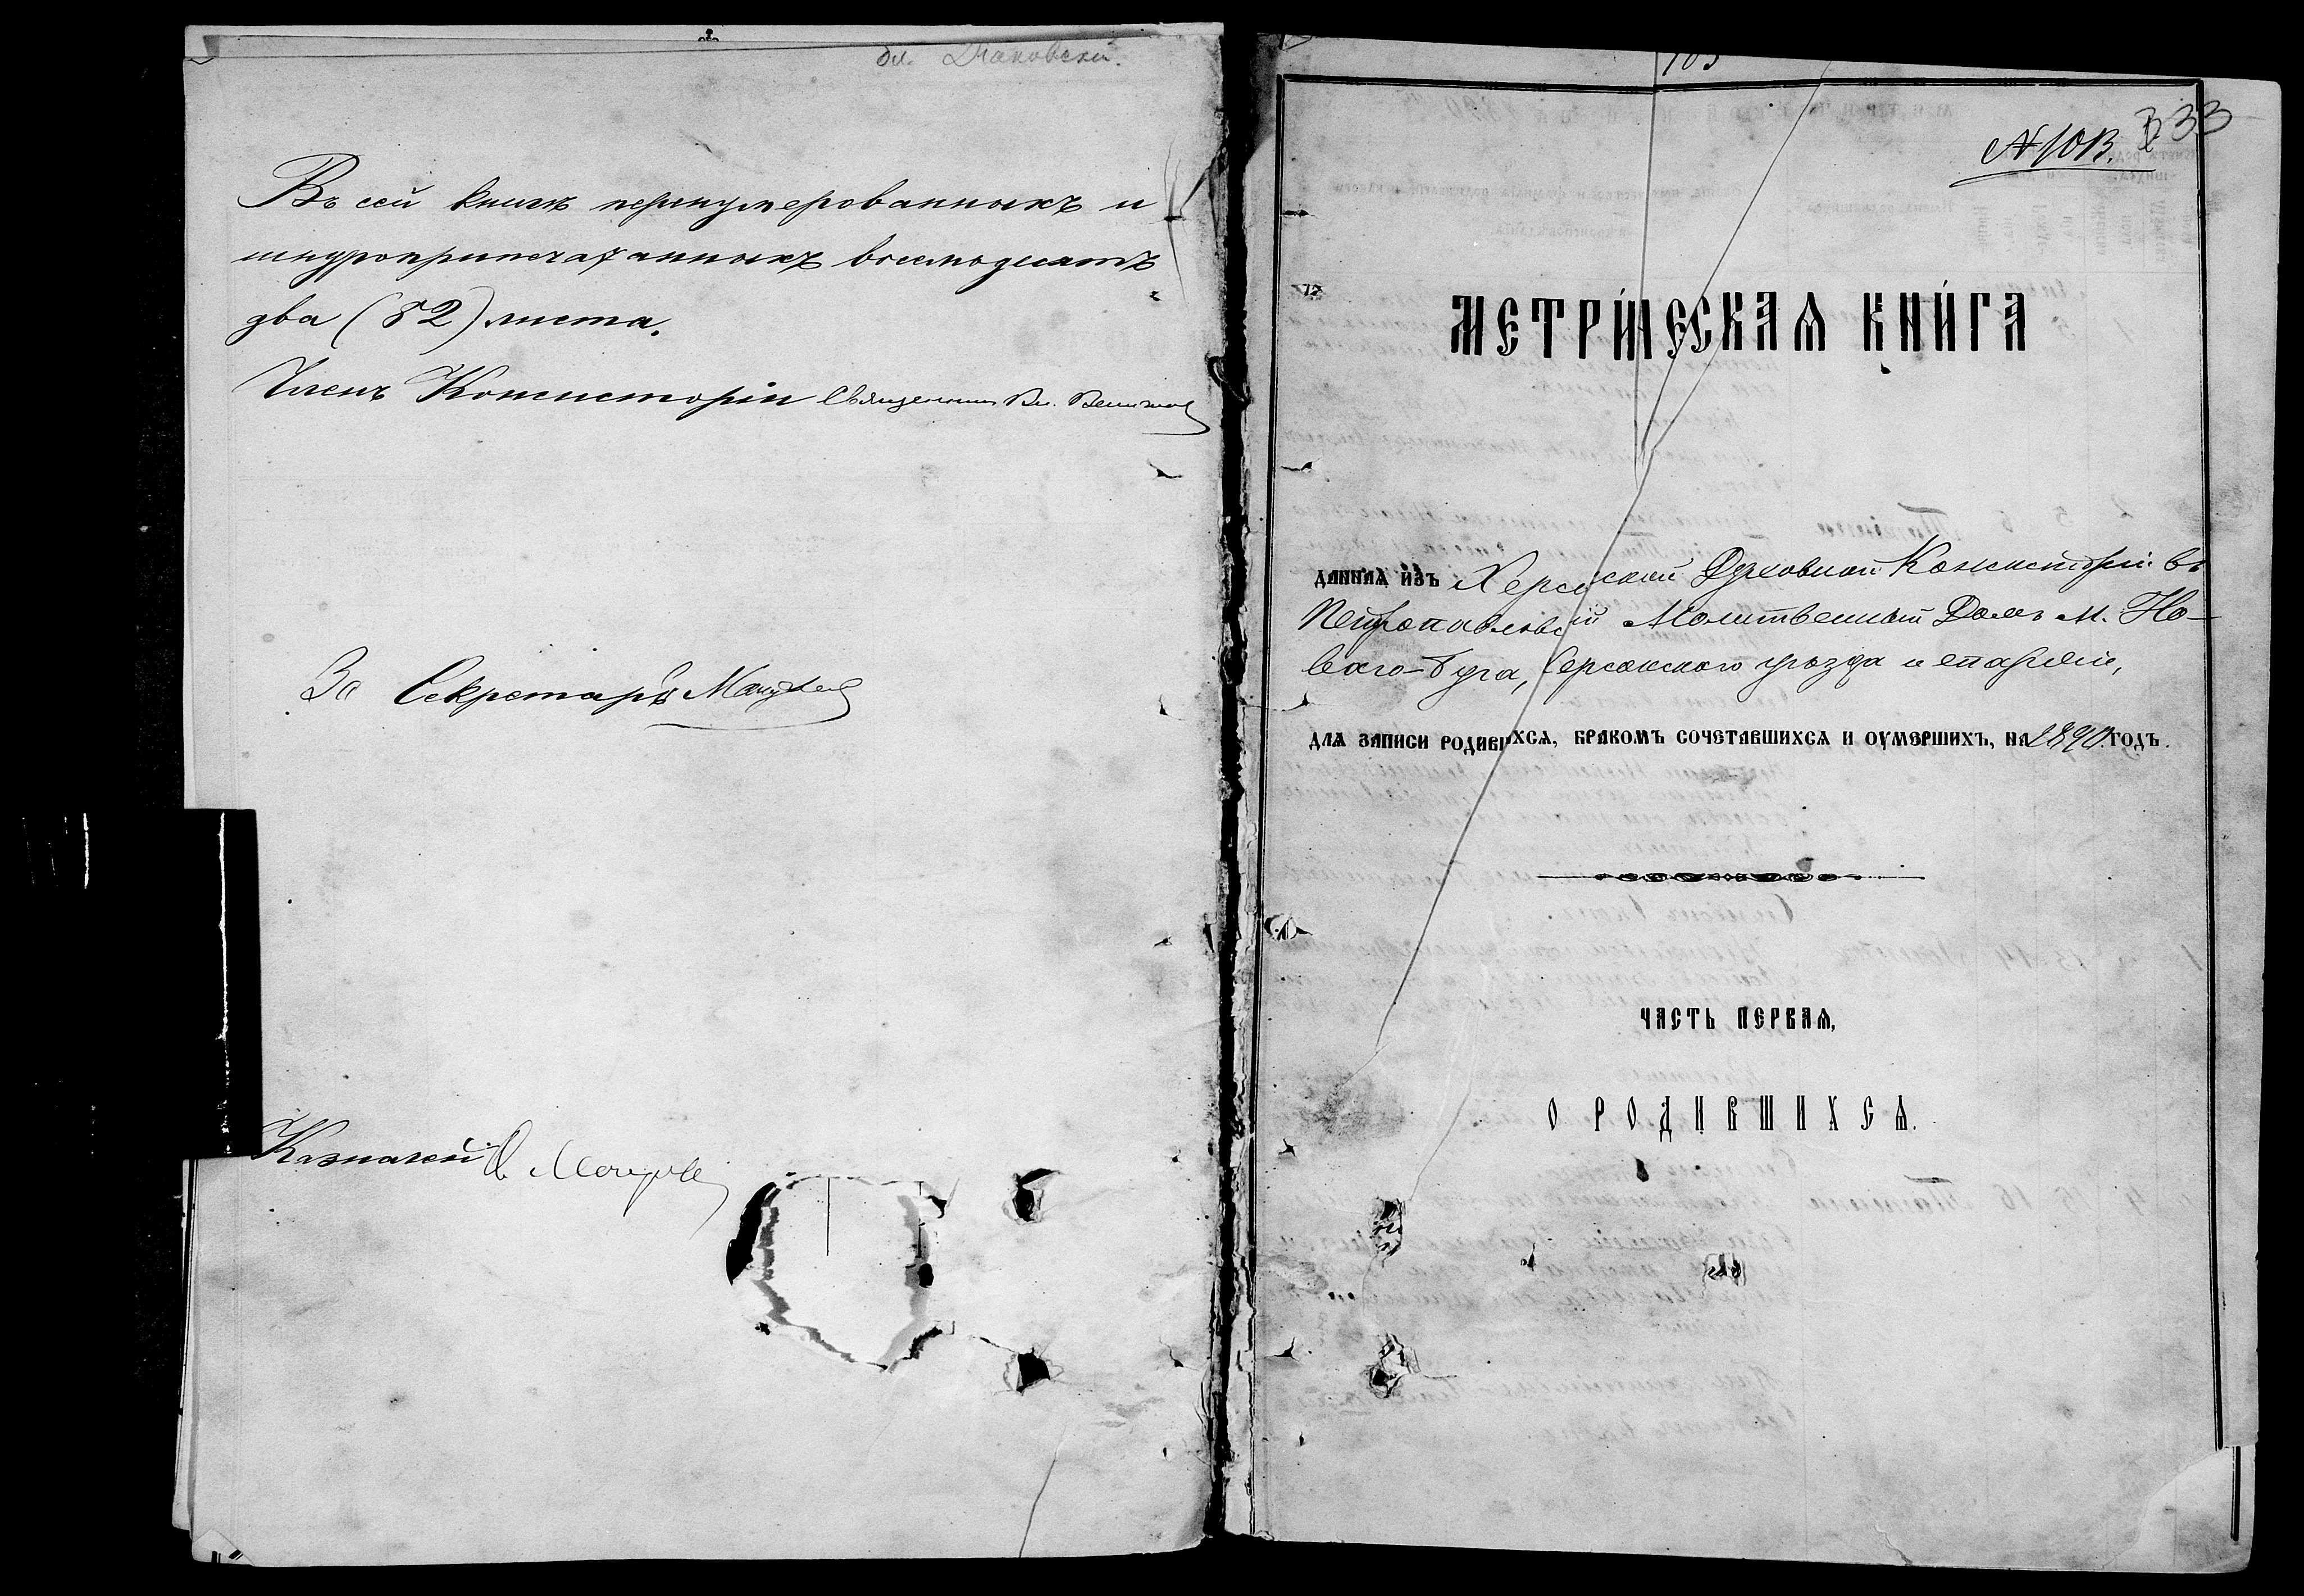 Въ сей книгѣ перенумерованныхъ и
шнуроприпечатанныхъ восемьдесятъ
два (82) листа.
Членъ Консисторіи Священникъ Вл.
За Секретаря
Казначей
333
МЕТРИЧЕСКАѦ КНИГА
даннаѧ изъ Херсонской Духовной Консисторіи въ
Петропавловскій Молитвенный Домъ м. Но-
ваго-Буга, Херсонскаго уѣзда и епархіи,
длѧ записи родившихсѧ, бракомъ сочетавшихсѧ и оумершихъ, на 1890 годъ.
ЧАСТЬ ПЕРВАѦ,
О РОДИВШИХСѦ.